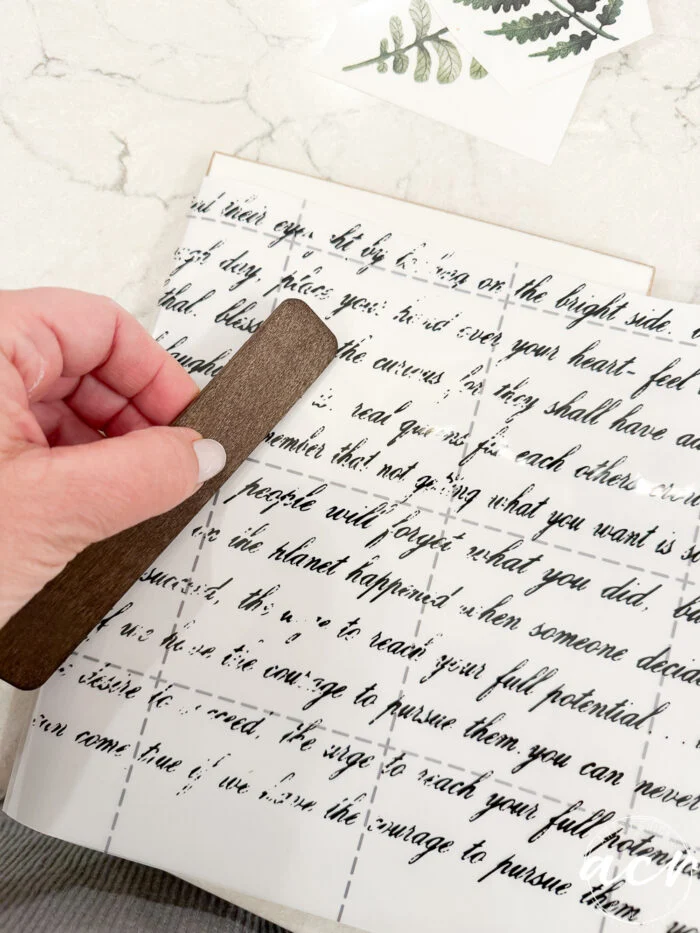 their eyes by on the bright side.
day, place your hand over your heart- feel
that. the curious for they shall have
real queens fix each others
remember that not getting what you want is
people will forget what you did,
on the planet happened when someone
succeed, the urge to reach your full potential...
if we have the courage to pursue them you can never
desire to succeed, the urge to reach your full
can come true if we have the courage to pursue them
acn